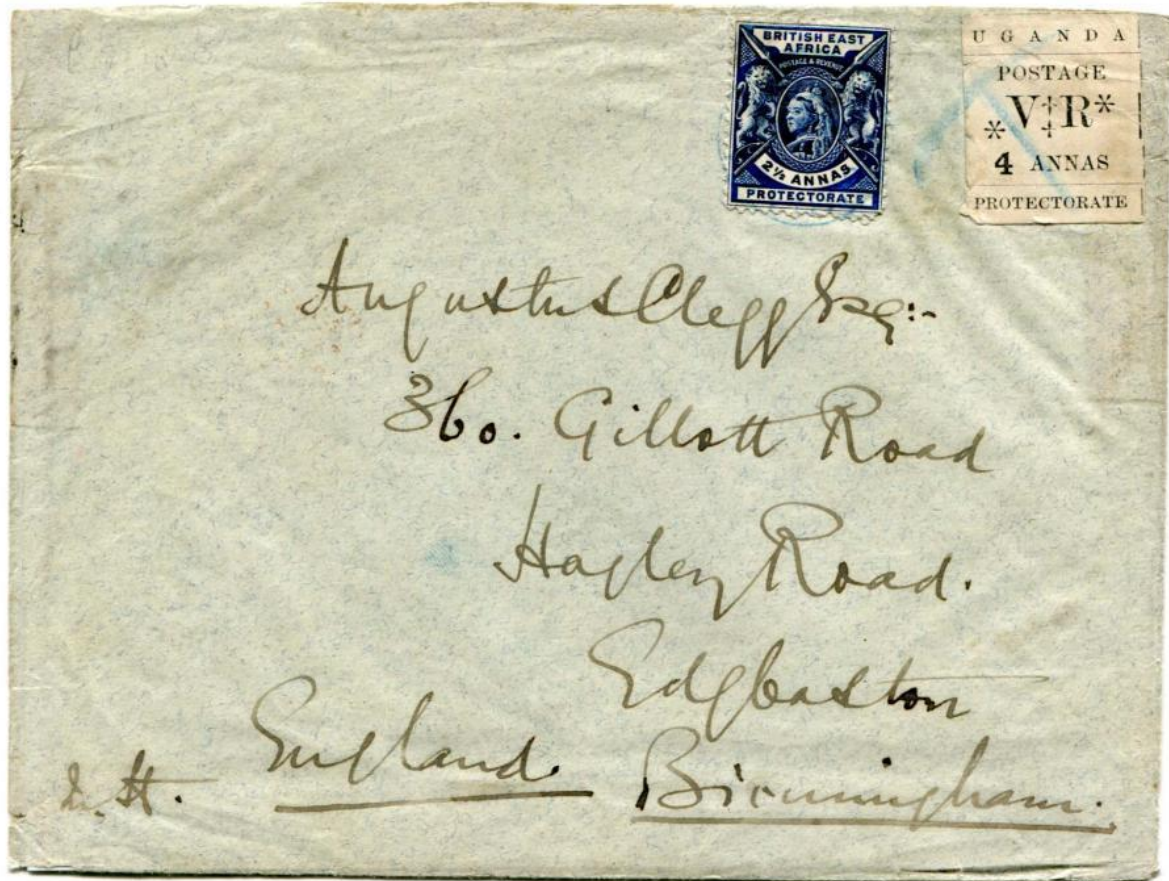 BRITISH EAST
AFRICA
POSTAGE & REVENUE
2½ ANNAS
PROTECTORATE
UGANDA
POSTAGE
*V‡R*
4 ANNAS
PROTECTORATE
Augustus Clegg Esq:-
360. Gillott Road
Hagley Road.
Edgbaston
England. Birmingham.